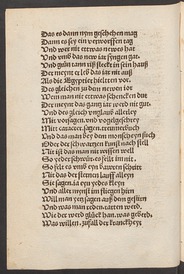 Das es dann nym geschehen mag
Dann es sey ein verworffen tag
Und wer nit ettwas newes hat
Und umb das new iar syngen gat
Und gryn tann riß steckt in sein hauß
Der meynt er leb das iar nit auß
Als die Egyptier hielten vor
Des gleichen zu dem newen ior
Wem man nit ettwas schencken dut
Der meynt das gantz iar werd nit gut
Und des gleich ungloub allerley
Mit vorsagen und vogelgschrey
Mit caracter segen treumerbuch
Und das man bey dem monschein such
Oder der schwartzen kunst nach stell
Nit ist das man nit wissen well
So yeder schwür es felt im nit
So felt es umb eyn bawren schritt
Nit das der sternen lauff alleyn
Sie sagen ia eyn yedes kleyn
Und aller mynst im fliegen hirn
Will man yetz sagen auß dem gstirn
Und was man reden raten werd
Wie der werd glück han was geberd
Was willen zufall der kranckheyt